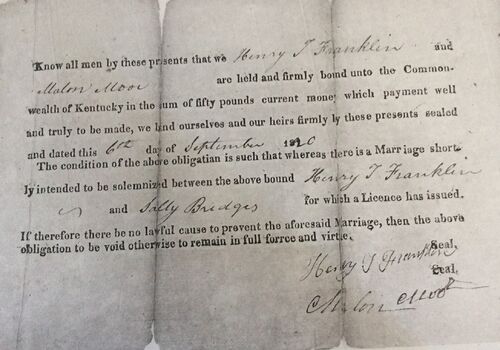 Know all men by these presents that we Henry T Franklin and
Malon Moor are held and firmly bound unto the Common-
wealth of Kentucky in the sum of fifty pounds current money which payment well
and truly to be made, we bind ourselves and our heirs firmly by these presents sealed
and dated this 6th day of September 1820
The condition of the above obligatian is such that whereas there is a Marriage short-
ly intended to be solemnized between the above bound Henry T Franklin
and Sally Bridges for which a Licence has issued.
If therefore there be no lawful cause to prevent the aforesaid Marriage, then the above
obligation to be void otherwise to remain in full forrce and virtue.
Seal,
Henry T Franklin
Seal,
Malon Moor